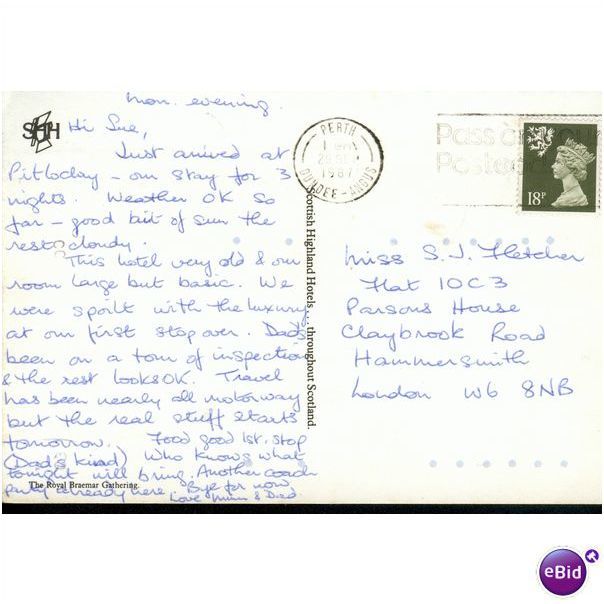 Mon. evening.
SHH
Hi Sue,
Just arrived at
Pitlochy - our stay for 3
nights. Weather OK so
far - good bit of sun the
rest cloudy.
This hotel very old & our
room large but basic. We
were spoilt with the luxury
at our first stop over. Dad's
been on a tour of inspection
& the rest looks OK. Travel
has been nearly all motorway
but the real stuff starts
tomorrow. Food good 1st. stop
(Dad's kind) Who knows what
tonight will bring. Another coach
party already here. Bye for now
Love Mum & Dad.
The Royal Braemar Gathering.
Scottish Highland Hotels... throughout Scotland.
PERTH
1987
DUNDEE - ANGUS
18P
Miss S. J. Fletcher
Flat 10C3
Parsons House
Claybrook Road
Hammersmith
London W6 8NB
eBid